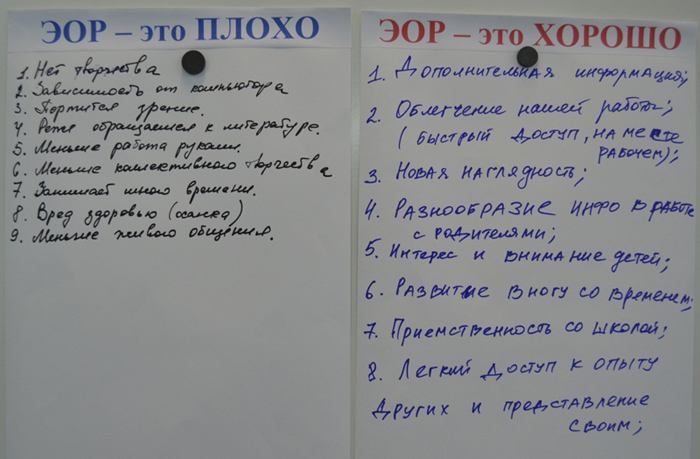 ЭОР – это ПЛОХО
1. Нет творчества
2. Зависимость от компьютора
3. Портится зрение.
4. Реже обращаемся к литературе.
5. Меньше работа руками.
6. Меньше коллективного творчества
7. Занимает много времени.
8. Вред здоровью (осанка)
9. Меньше живого общения.
ЭОР – это ХОРОШО
1. Дополнительная информация;
2. Облегчение нашей работы;
(быстрый доступ, на месте
рабочем);
3. Новая наглядность;
4. Разнообразие инфо в работе
с родителями;
5. Интерес и внимание детей;
6. Развитие в ногу со временем;
7. Приемственность со школой;
8. Легкий доступ к опыту
других и представление
своим;